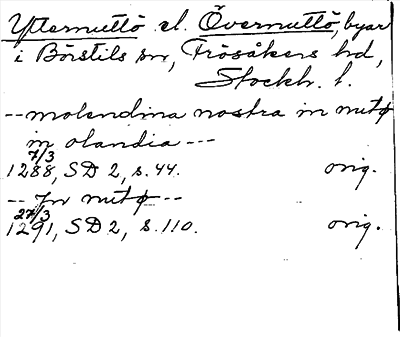 Yttermuttö el. Övermuttö, byar
i Börstils sn, Frösåkers hd,
Stockh. l.
-- molendina nostra in mutø
in olandia ---
7/3
1288, SD 2, s. 44. orig.
-- Jn mutø --
27/3
1291, SD 2, s. 110. orig.